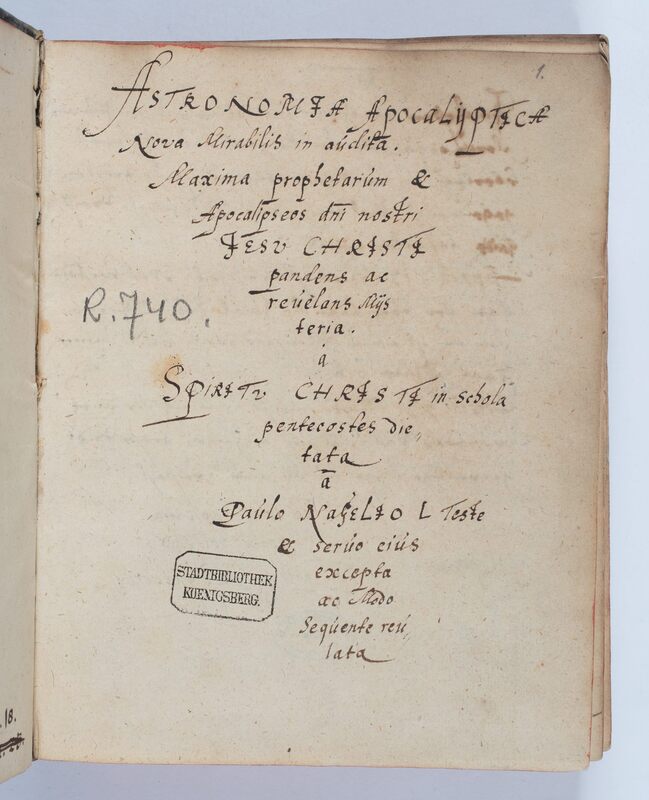 1.
ASTRONOMIA ApocALijPTICA
Nova Mirabilis in aúdita.
Maxima prophetarúm &
Apocalipseos dni nostri
IESV CHRISTI
pandens ac
reúelans Mijs
teria.
á
SPIRITV CHRISTI in scholá
pentecostes dic„
tata
a
Paúlo NagELIO L Teste
& serúo eiús
excepta
ac Modo
Seqúente reú
lata
R.740.
STADTBIBLIOTHEK
KOENIGSBERG.
18.